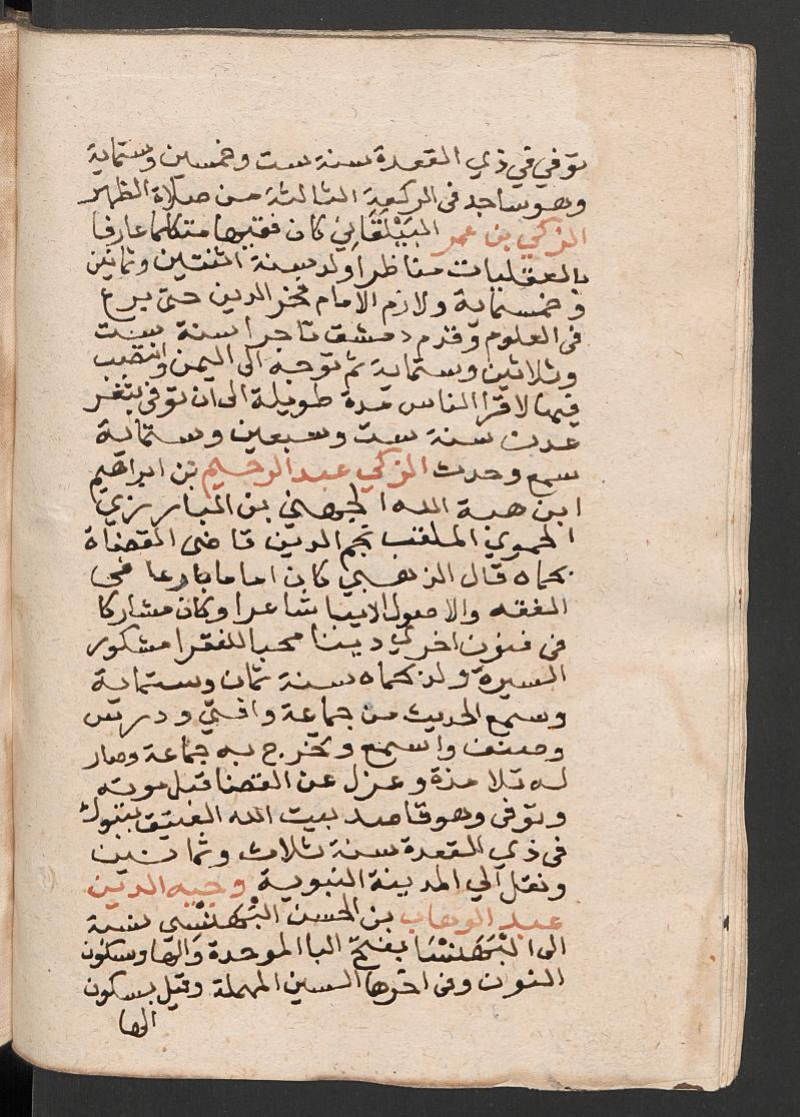 توفي في ذي القعدة سنة ست وخمسين وستماية
وهو ساجد في الركعة الثالثة من صلاة الظهر
الزكي بن عمر البَيْلَقَانِي كان فقيها متكلما عارفا
بالعقليات مناظرا ولد سنة اثنتين وثمانين
وخمسماية ولازم الامام فخر الدين حتى برع
في العلوم وقدم دمشق تاجرا سنة ست
وثلاثين وستماية ثم توجه الى اليمن وانتصب
فيها لاقرا الناس مدة طويلة الى ان توفي بثغر
عدن سنة ست وسبعين وستماية
سمع وحدث الزكي عبد الرحيم بن ابراهيم
ابن هبة الله الجهني بن البارزي
الحموي الملقب نجم الدين قاضي القضاة
بحماه قال الذهبي كان اماما بارعا في
الفقه والاصول اديبا شاعرا وكان مشاركا
في فنون اخرى دينا محبا للفقرا مشكور
السيرة ولد بحماه سنة ثمان وستماية
وسمع الحديث من جماعة وافتى ودرس
وصنف واسمع وتخرج به جماعة وصار
له تلامذة وعزل عن القضا قبل موته
وتوفي وهو قاصد بيت الله العتيق بتبوك
في ذي القعدة سنة ثلاث وثمانين
ونقل الي المدينة النبوية وجيه الدين
عبد الوهاب بن الحسن البَهَنْسِي نسبة
الى البَهَنْسَا بفتح البا الموحدة والها وسكون
النون وفي اخرها السين المهملة وقيل بسكون
الها